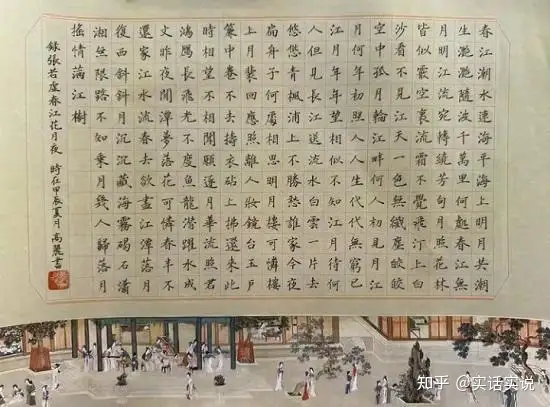 春江潮水連海平海上明月共潮
生灩灩隨波千萬里何處春江無
月明江流宛轉繞芳甸月照花林
皆似霰空裏流霜不覺飛汀上白
沙看不見江天一色無纖塵皎皎
空中孤月輪江畔何人初見月江
月何年初照人人生代代無窮已
江月年年望相似不知江月待何
人但見長江送流水白雲一片去
悠悠青楓浦上不勝愁誰家今夜
扁舟子何處相思明月樓可憐樓
上月裴回應照離人妝鏡台玉戶
簾中卷不去擣衣砧上拂還來此
時相望不相聞願逐月華流照君
鴻鴈長飛光不度魚龍潛躍水成
文昨夜閒潭夢落花可憐春半不
還家江水流春去欲盡江潭落月
復西斜斜月沉沉藏海霧碣石瀟
湘無限路不知乘月幾人歸落月
搖情滿江樹
錄張若虛春江花月夜 時在甲辰夏月 高麗書
知乎 @实话实说